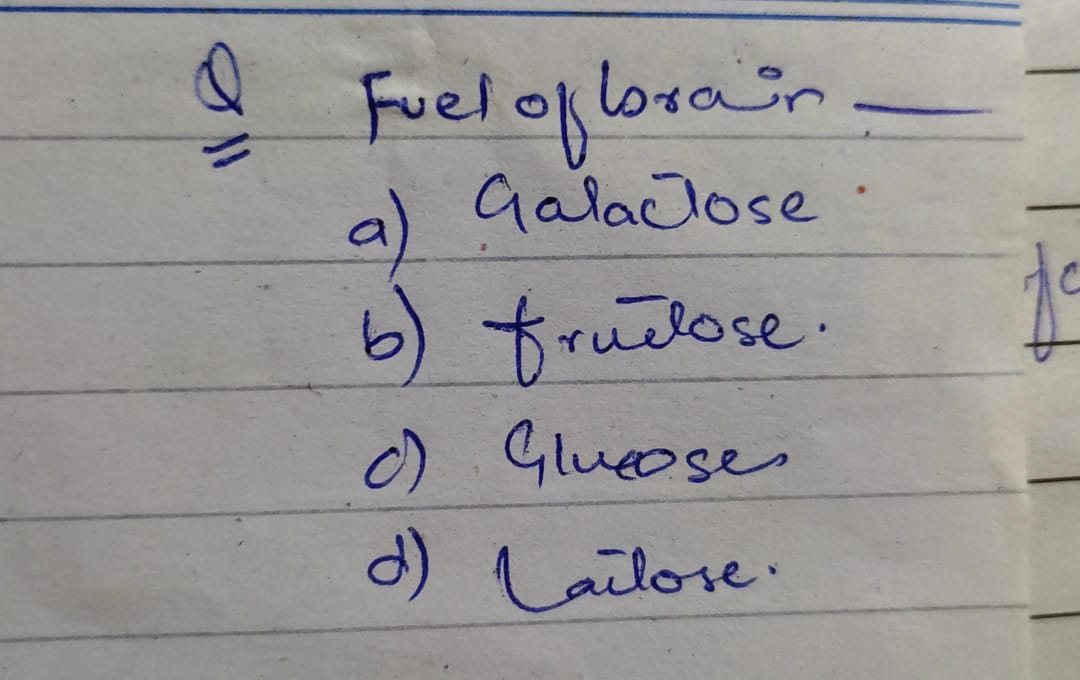 Q Fuel of brain —
a) Galactose
b) fructose.
c) Glucose
d) Lactose.